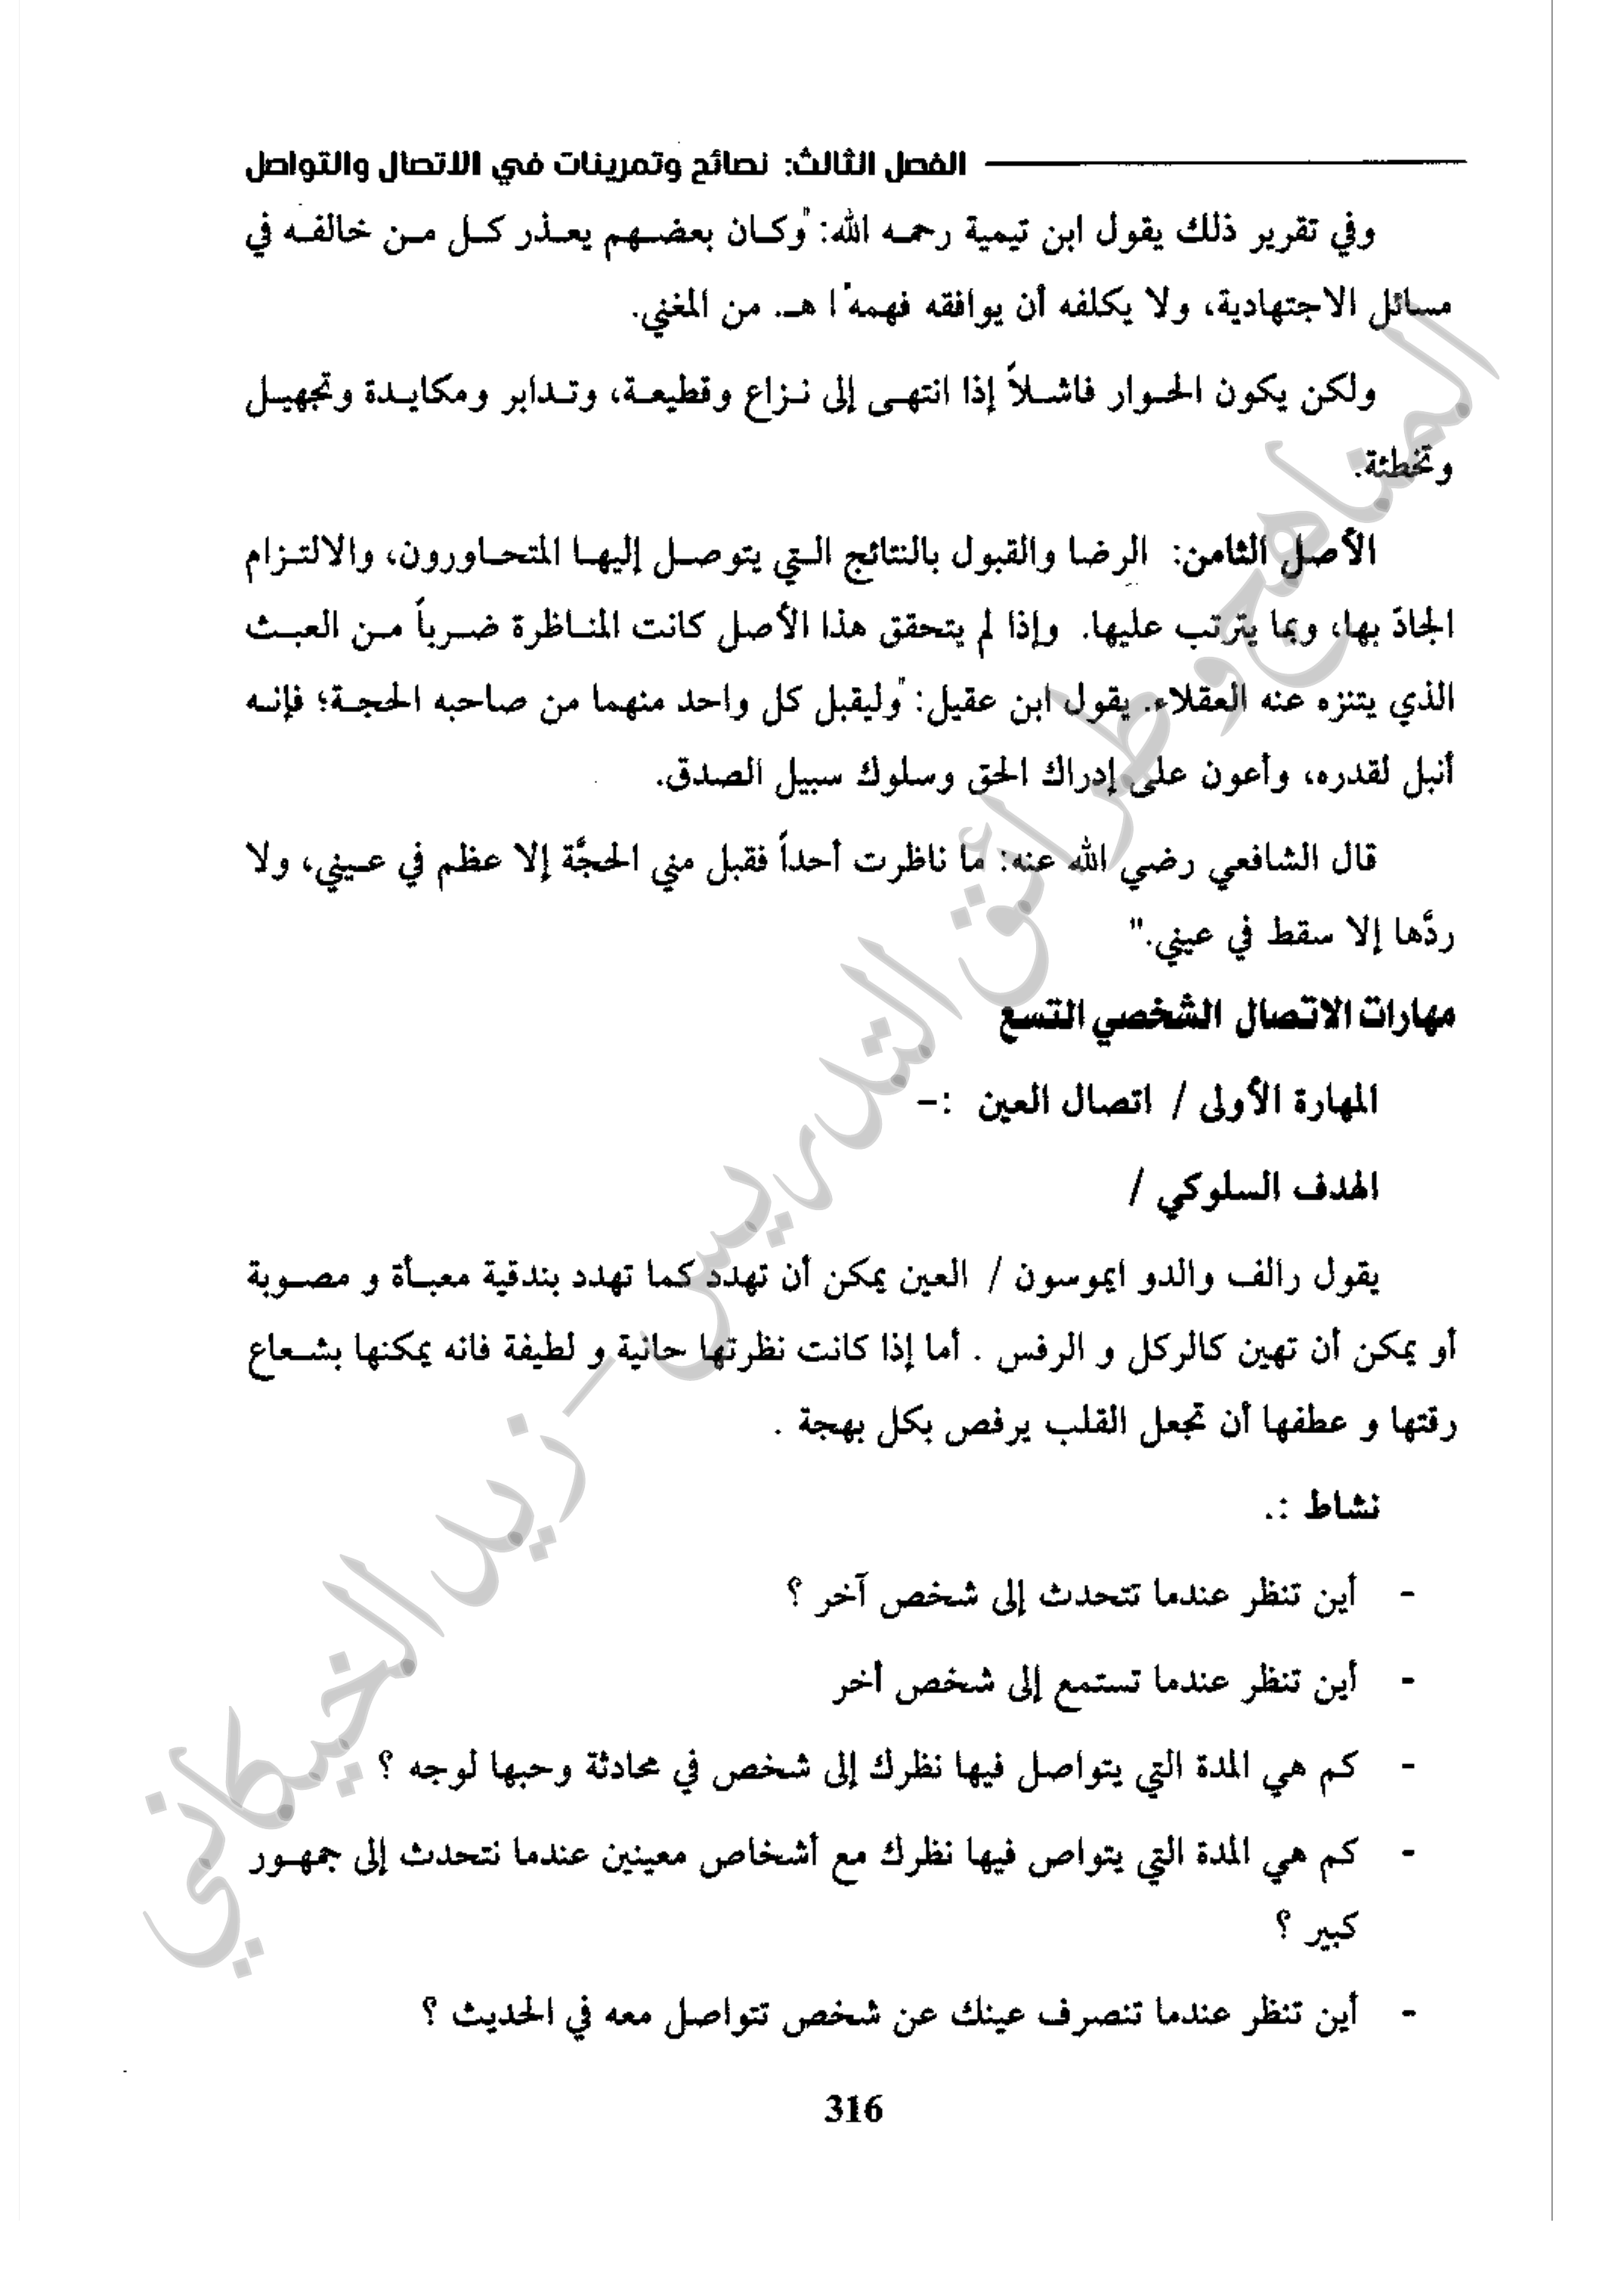 الفصل الثالث: نصائح وتمرينات في الاتصال والتواصل
وفي تقرير ذلك يقول ابن تيمية رحمه الله: "وكان بعضهم يعذر كل من خالفه في
مسائل الاجتهادية، ولا يكلفه أن يوافقه فهمه" ا هـ. من المغني.
ولكن يكون الحوار فاشلاً إذا انتهى إلى نزاع وقطيعة، وتدابر ومكايدة وتجهيل
وتخطئة.
الأصل الثامن: الرضا والقبول بالنتائج التي يتوصل إليها المتحاورون، والالتزام
الجادّ بها، وبما يترتب عليها. وإذا لم يتحقق هذا الأصل كانت المناظرة ضرباً من العبث
الذي يتنزه عنه العقلاء. يقول ابن عقيل: "وليقبل كل واحد منهما من صاحبه الحجة؛ فإنه
أنبل لقدره، وأعون على إدراك الحق وسلوك سبيل الصدق.
قال الشافعي رضي الله عنه: ما ناظرت أحداً فقبل مني الحجَّة إلا عظم في عيني، ولا
ردَّها إلا سقط في عيني."
مهارات الاتصال الشخصي التسع
المهارة الأولى / اتصال العين :–
الهدف السلوكي /
يقول رالف والدو ايموسون / العين يمكن أن تهدد كما تهدد بندقية معبأة و مصوبة
أو يمكن أن تهين كالركل و الرفس . أما إذا كانت نظرتها حانية و لطيفة فانه يمكنها بشعاع
رقتها و عطفها أن تجعل القلب يرفص بكل بهجة .
نشاط :.
- أين تنظر عندما تتحدث إلى شخص آخر ؟
- أين تنظر عندما تستمع إلى شخص أخر
- كم هي المدة التي يتواصل فيها نظرك إلى شخص في محادثة وحبها لوجه ؟
- كم هي المدة التي يتواص فيها نظرك مع أشخاص معينين عندما نتحدث إلى جمهور
كبير ؟
- أين تنظر عندما تنصرف عينك عن شخص تتواصل معه في الحديث ؟
316
المناهج وطرائق التدريس - زيد الخيكاني